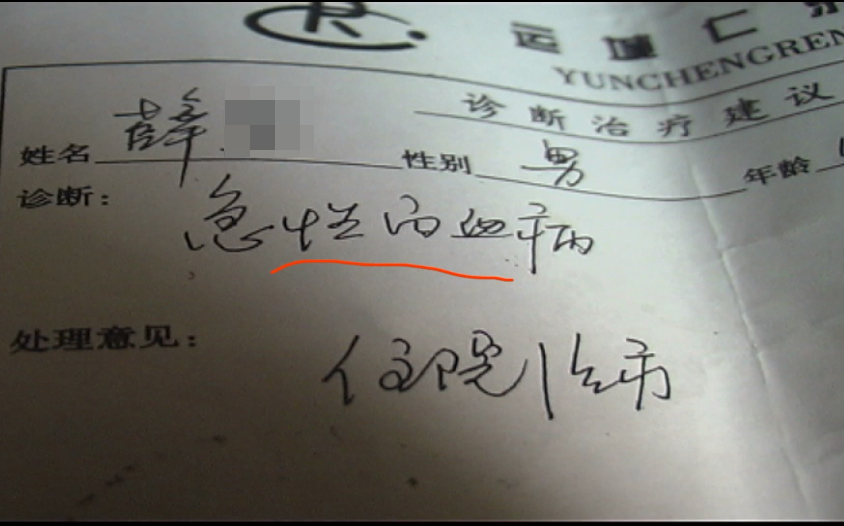 R
运城仁
YUNCHENGREN
诊断治疗建议
姓名 薛 性别 男 年龄
诊断：
急性白血病
处理意见：
住院治疗